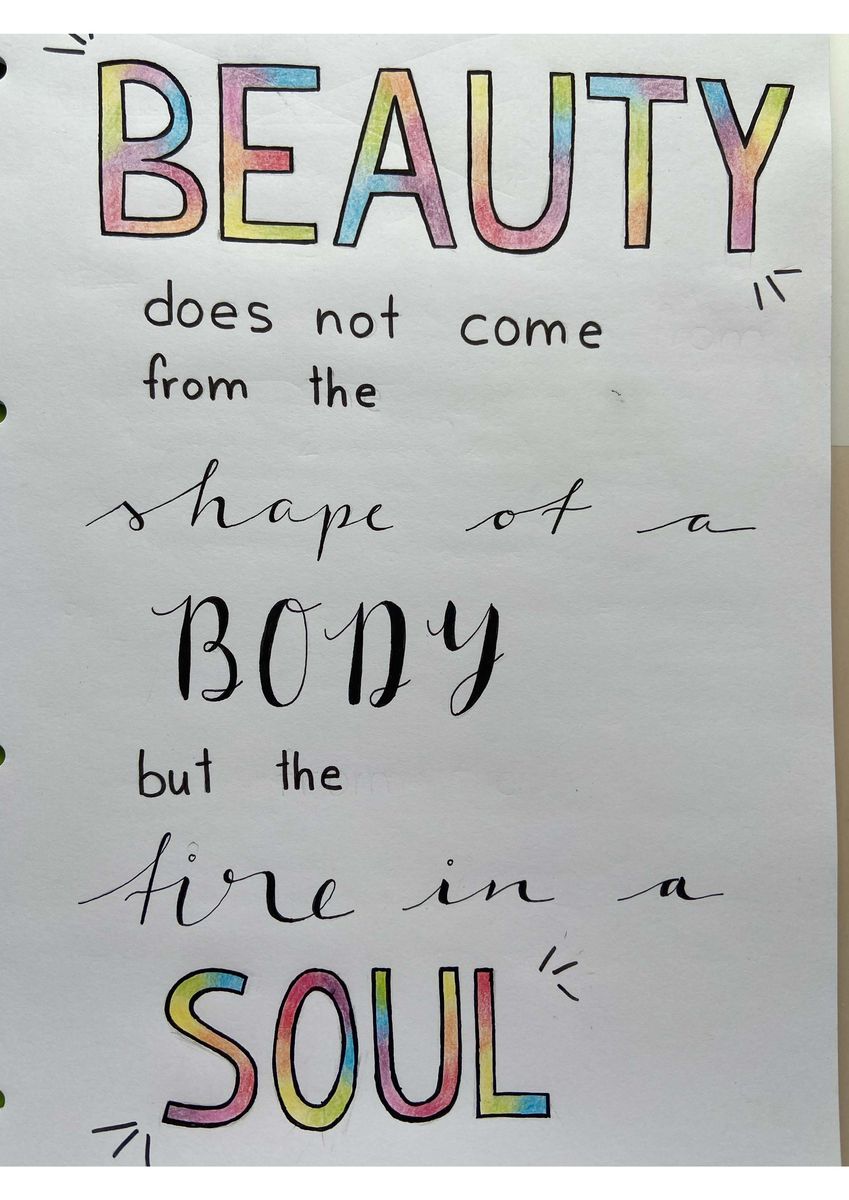 BEAUTY
does not come
from the
shape of a
BODY
but the
fire in a
SOUL